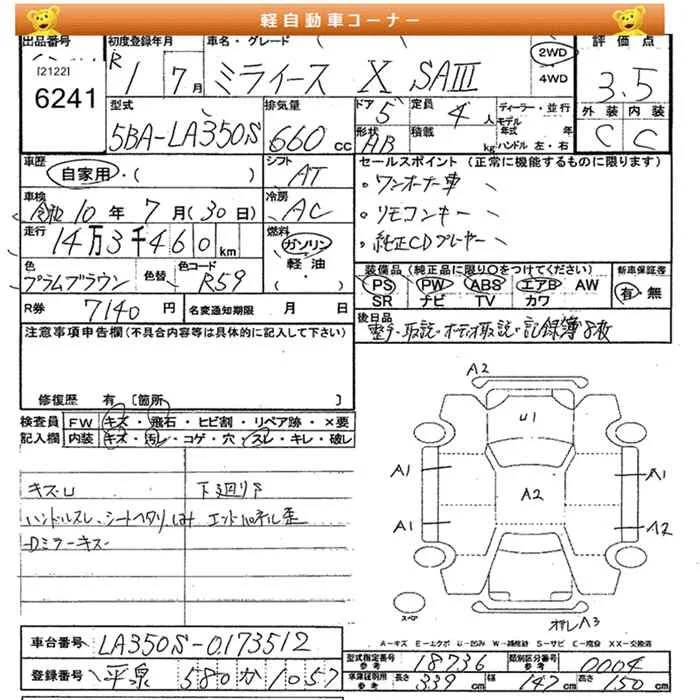 軽自動車コーナー
出品番号 初度登録年月 車名・グレード ( ) 評価点
[2122]
6241
R 1 7月 ミライース X SAIII 2WD 4WD 3.5
型式 排気量 ドア 定員 ディーラー・並行 外装 内装
5BA-LA350S 660cc 5 4人 モデル年式 年 C C
形状 AB 積載 kg ハンドル 左・右
車歴 シフト セールスポイント (正常に機能するものに限ります)
自家用・( ) AT ・ワンオーナー車
車検 冷房
令和10年7月(30日) AC ・リモコンキー
走行 燃料
14万3千460km ガソリン・軽油・( ) ・純正CDプレーヤー
色 色替 色コード 装備品 (純正品に限り○をつけてください) 新車保証書
プラムブラウン R59 PS PW ABS エアB AW 有・無
SR ナビ TV カワ
R券 7140円 名変通知期限 月 日 後日品
注意事項申告欄(不具合内容等は具体的に記入して下さい) 整手・取説・オーディオ取説・記録簿8枚
修復歴 有 [箇所 ]
検査員 FW キズ・飛石・ヒビ割・リペア跡・×要
記入欄 内装 キズ・汚レ・コゲ・穴・スレ・キレ・破レ
キズU 下廻りサ
ハンドルスレ、シートヘタリ エンドパネル歪
Dミラーキズ
A2
U1
A1 A1
A2
A1 A2
スペア
A3
A-キズ E-エクボ U-凹み W-補修跡 S-サビ C-腐食 XX-交換済
車台番号 LA350S-0173512
型式指定番号 参考 18736 類別区分番号 参考 0004
登録番号 平泉 580 か 1057
車庫証明用 参考 長さ 339cm 幅 147cm 高さ 150cm